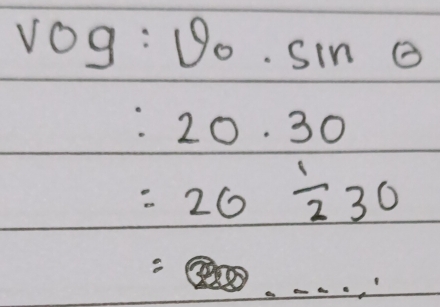 vog : v₀ . sin θ
: 20 . 30
= 20 1/2 30
= ......